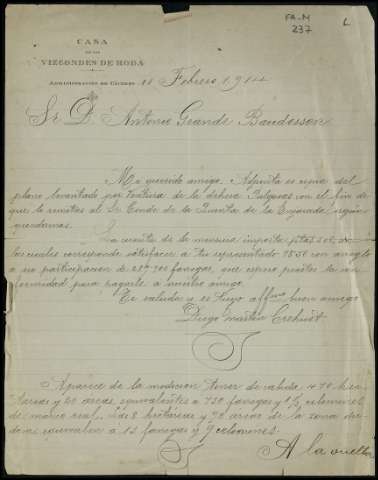 FA-M
237
L
CASA
DE LOS
VIZCONDES DE RODA
ADMINISTRACIÓN DE CÁCERES
11 Febrero 1914
Sr. D. Antonio Grande Baudesson
Mi querido amigo: Adjunta es copia del
plano levantado por Ventura de la dehesa Pulgosas con el fin de
que la remitas al Sr. Conde de la Quinta de la Enjarada según
quedamos.
La cuenta de la mensura importa ptas
las cuales corresponde satisfacer a tu representado con arreglo
a su participación de fanegas, que espero prestes la con-
formidad para pagarle a nuestro amigo.
Te saluda y es tuyo affmo buen amigo
Diego Martín
Aparece de la medición tener de cabida 470 hec-
táreas y 60 áreas, equivalentes a 730 fanegas y celemines
de marco real, y de 8 hectáreas y 90 áreas de la zona de
equivalen a 13 fanegas y 9 celemines.
A la vuelta